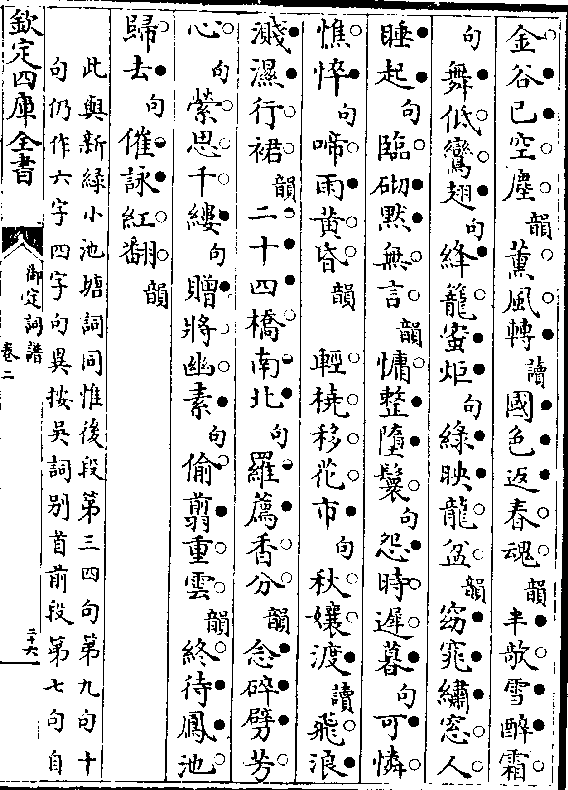 金谷已空塵韻薰風轉讀國色返春魂韻半欹雪醉霜
句舞低鸞翅句絳籠蜜炬句綠映龍盆韻窈窕繡窓人
睡起句臨砌默無言韻慵整墮鬟句怨時遲暮句可憐
憔悴句啼雨黄昏韻　輕橈移花市句秋孃渡讀飛浪
濺濕行裙韻二十四橋南北句羅薦香分韻念碎劈芳
心句縈思千縷句贈將幽素句偷翦重雲韻終待鳳池
歸去句催詠紅翻韻
此與新綠小池塘詞同惟後段第三四句第九句十
句仍作六字四字句異按吳詞别首前段第七句自
欽定四庫全書
御定詞譜
卷二
二十六